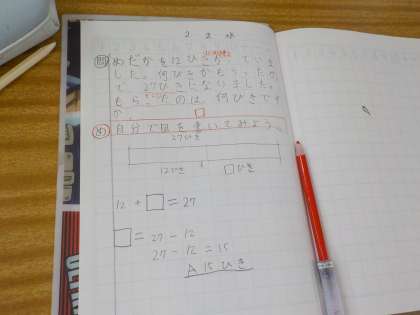 2 2 水
問 めだかを12ひきかっていま
した。何びきかもらったの
で、27ひきになりました。
もらったのは、何びきです
か。
め 自分で図を書いてみよう。
27ひき
12ひき □ひき
12 + □ = 27
□ = 27 - 12
27 - 12 = 15
A 15ひき